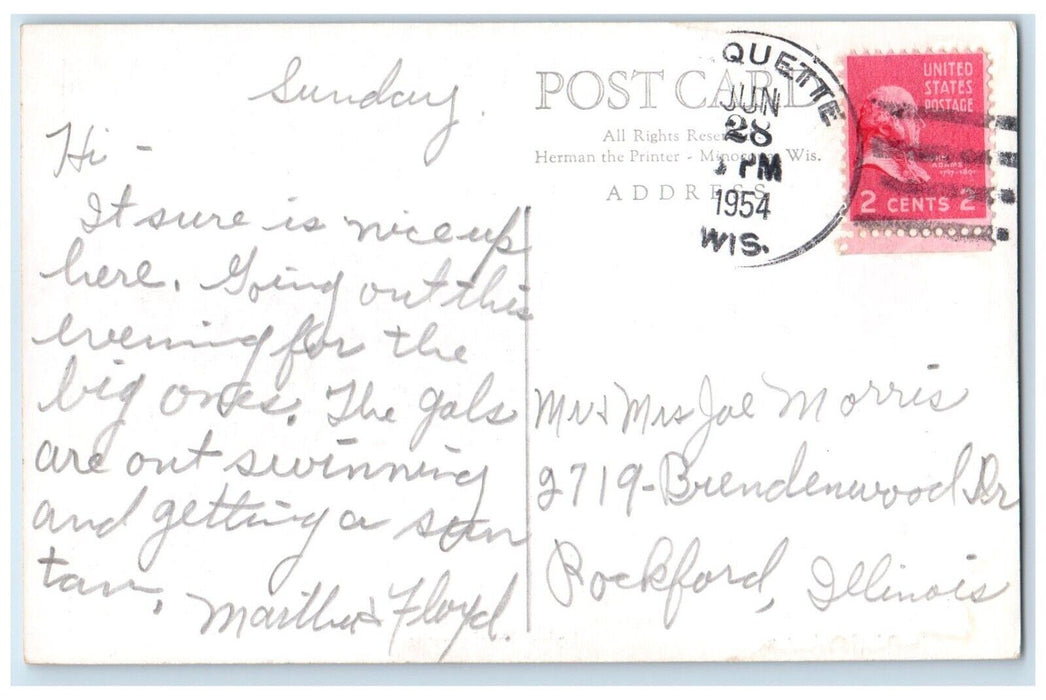 Sunday.
Hi -
It sure is nice up
here. Going out this
evening for the
big ones. The gals
are out swinning
and getting a sun
tan.
Martha & Floyd.
POST CARD
All Rights
Herman the Printer - Wis.
ADDRESS
QUETTE
JUN
28
PM
1954
WIS.
UNITED
STATES
POSTAGE
ADAMS
2 CENTS 2
Mr & Mrs Joe Morris
2719 - Brendenwood Dr
Rockford, Illinois